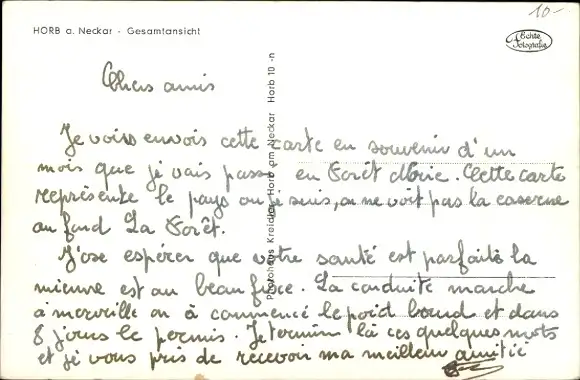 10-
HORB a. Neckar - Gesamtansicht
Echte Fotografie
Chers amis
Je vous envois cette carte en souvenir d'un
mois que je vais passer en Forêt Noire. Cette carte
représente le pays ou je suis, on ne voit pas la caserne
au fond La Forêt.
J'ose espérer que votre santé est parfaite la
mienne est au beau fixe. La conduite marche
à merveille on à commencé le poid lourd et dans
8 jours le permis. Je termin là ces quelques mots
et je vous pris de recevoir ma meilleur amitié
Photohaus Kreidler Horb am Neckar Horb 10 -n